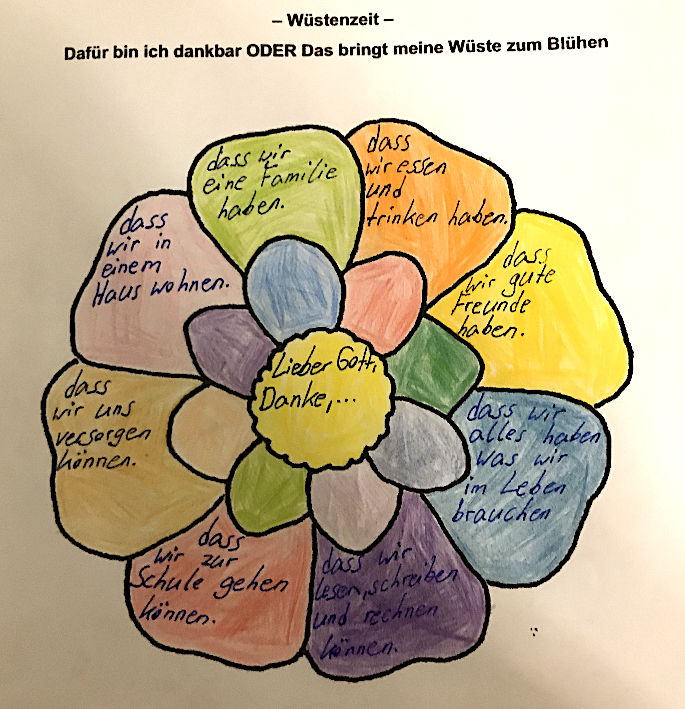 – Wüstenzeit –
Dafür bin ich dankbar ODER Das bringt meine Wüste zum Blühen
Lieber Gott,
Danke,...
dass wir
eine Familie
haben.
dass
wir essen
und
trinken haben.
dass
wir gute
Freunde
haben.
dass wir
alles haben
was wir
im Leben
brauchen
dass wir
lesen, schreiben
und rechnen
können.
dass
wir zur
Schule gehen
können.
dass
wir uns
versorgen
können.
dass
wir in
einem
Haus wohnen.